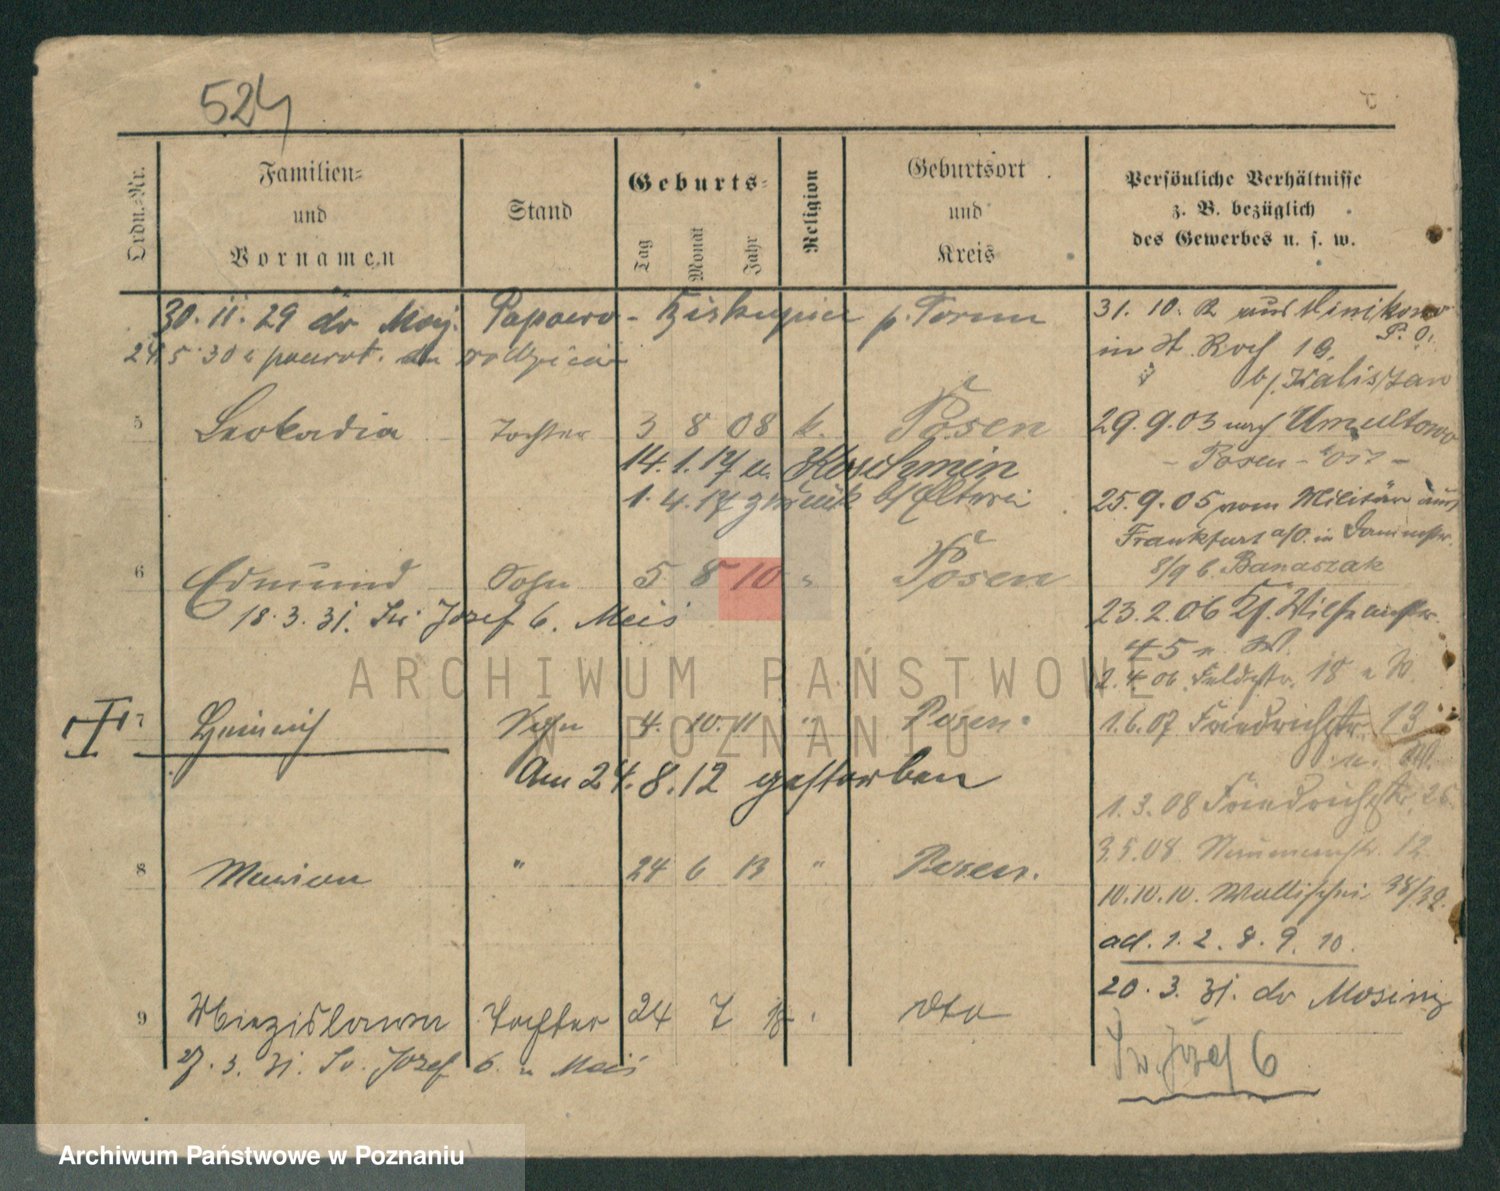 524
Ordn.-Nr.
Familien-
und
Vornamen
Stand
Geburts-
Tag
Monat
Jahr
Religion
Geburtsort
und
Kreis
Persönliche Verhältnisse
z. B. bezüglich
des Gewerbes u. s. w.
30. 11. 29 do Papowo - Biskupie p. Torun
24. 5. 30 z powrot.
5 Leokadia Tochter 3 8 08 k. Posen
14. 1. 17 n. Koschmin
1. 4. 17 zurück b/ Eltern
6 Edmund Sohn 5 8 10 " Posen
18. 3. 31. Sw Jozef 6. Meis
7 Heinrich Sohn 4. 10. 11 " Posen.
Am 24. 8. 12 gestorben
8 Marian " 24 6 13 " Posen.
9 Miezislawa Tochter 24 7 dto
27. 3. 31. Sw. Jozef 6. u Meis
31. 10. aus Minikowo
P. O.
in St. Roch 19.
29. 9. 03 nach Umultowo
- Posen - Ost -
25. 9. 05 vom Militär aus
Frankfurt a/O. in
8/9 b. Banaszak
23. 2. 06
45
2. 4. 06. Feldstr. 18
1. 6. 07 Friedrichstr. 13
1. 3. 08 Friedrichstr. 26
3. 5. 08 Naumannstr. 12
10. 10. 10. Wallischei 38/39.
ad. 1. 2. 8. 9. 10.
20. 3. 31. do Mosiny
Sw. Józef 6
ARCHIWUM PAŃSTWOWE
W POZNANIU
Archiwum Państwowe w Poznaniu